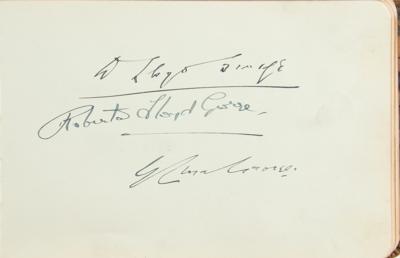 D Lloyd George
Roberta Lloyd George.
George.